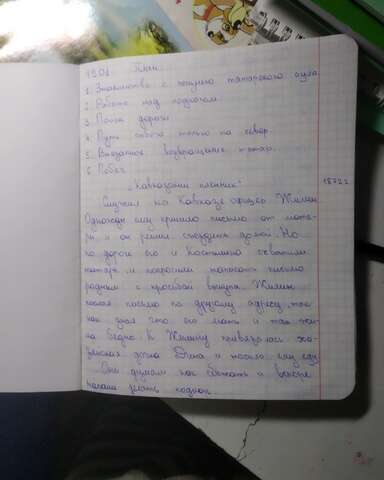 19.01 План.
1. Знакомство с жизнью татарского аула
2. Работа над подкопом
3. Поиск дороги
4. Путь только на север
5. Внезапное возвращение татар.
6. Побег
"Кавказский пленник"
Служил на Кавказе офицер Жилин
Однажды ему пришло письмо от мате-
ри и он решил съездить домой. Но
по дороге его и Костылина схватили
татары и попросили написать письмо
родным с просьбой выкупа. Жилин
послал письмо по другому адресу, так
как знал что его мать и так жи-
ла бедно. К Жилину привязалась хо-
зяйская дочка Дина и носила ему еду
Они думали как бежать и
начали делать подкоп.
18722